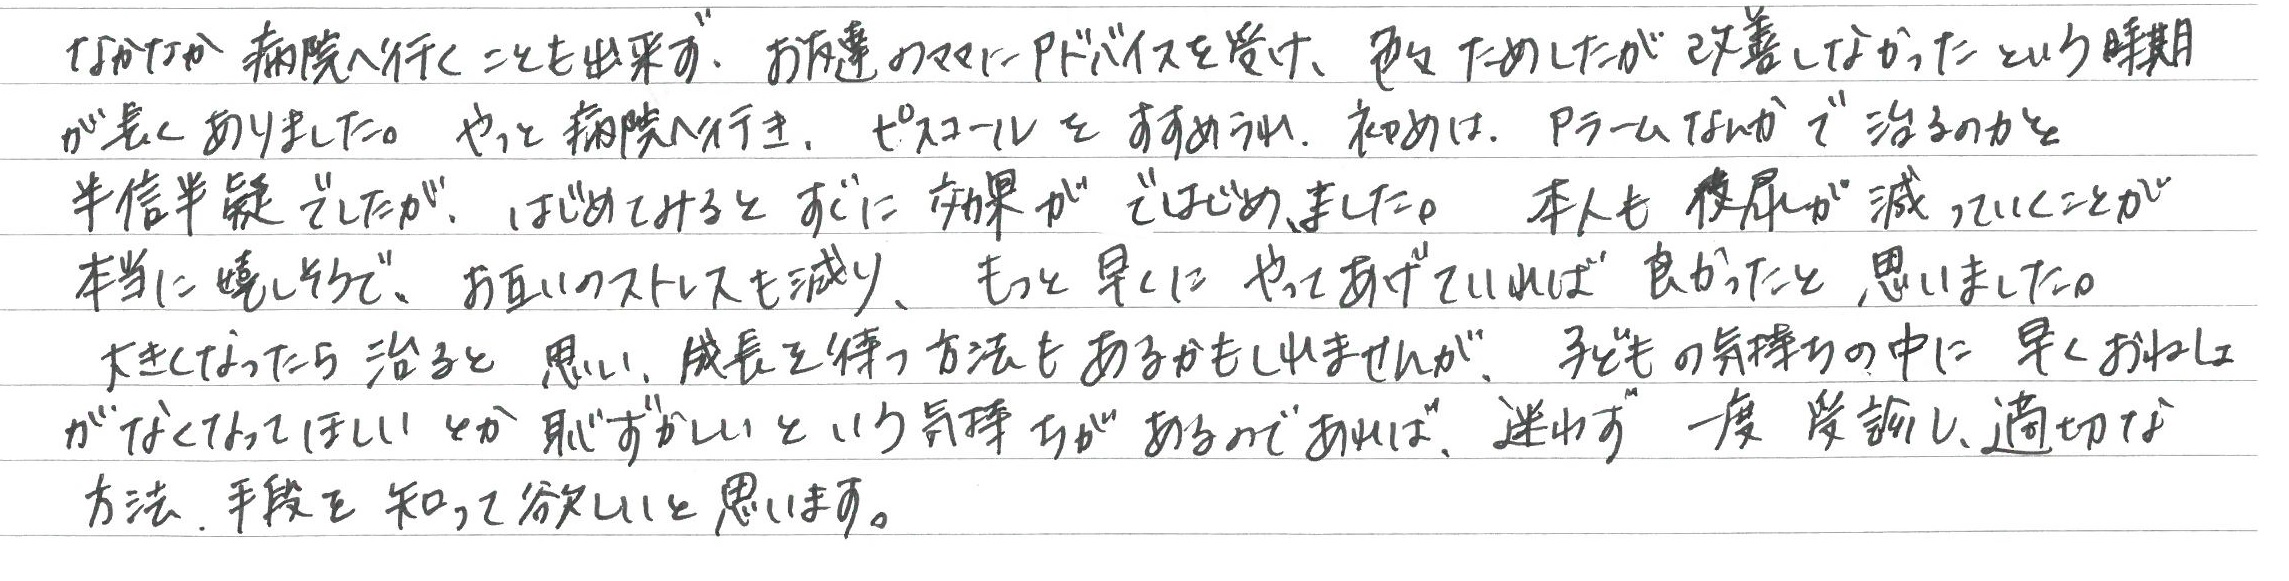 なかなか病院へ行くことも出来ず、お友達のママにアドバイスを受け、色々ためしたが改善しなかったという時期
が長くありました。やっと病院へ行き、ピスコールをすすめられ、初めは、アラームなんかで治るのかと
半信半疑でしたが、はじめてみるとすぐに効果がではじめました。本人も夜尿が減っていくことが
本当に嬉しそうで、お互いのストレスも減り、もっと早くにやってあげていれば良かったと思いました。
大きくなったら治ると思い、成長を待つ方法もあるかもしれませんが、子どもの気持ちの中に早くおねしょ
がなくなってほしいとか恥ずかしいという気持ちがあるのであれば、迷わず一度受診し、適切な
方法、手段を知って欲しいと思います。